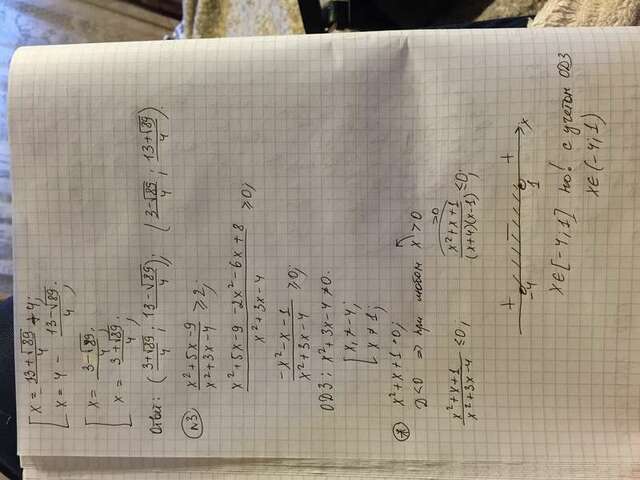 [ x = -(13+√89)/4 + 4;
[ x = 4 - (13-√89)/4;
[ x = (3-√89)/4;
[ x = (3+√89)/4;
Ответ: ((3+√89)/4; (13-√89)/4); ((3-√89)/4; (13+√89)/4).
№3 (x²+5x-9)/(x²+3x-4) ≥ 2;
(x²+5x-9 -2x²-6x+8)/(x²+3x-4) ≥ 0;
(-x²-x-1)/(x²+3x-4) ≥ 0;
ОДЗ: x²+3x-4 ≠ 0.
[ x₁ ≠ -4;
[ x ≠ 1;
* x²+x+1 = 0;
D<0 ⇒ при любом x > 0
(x²+x+1)/(x²+3x-4) ≤ 0; >0 (x²+x+1)/((x+4)(x-1)) ≤ 0;
+ − +
-4 1 x
x∈[-4;1] но! с учетом ОДЗ
x∈(-4;1)